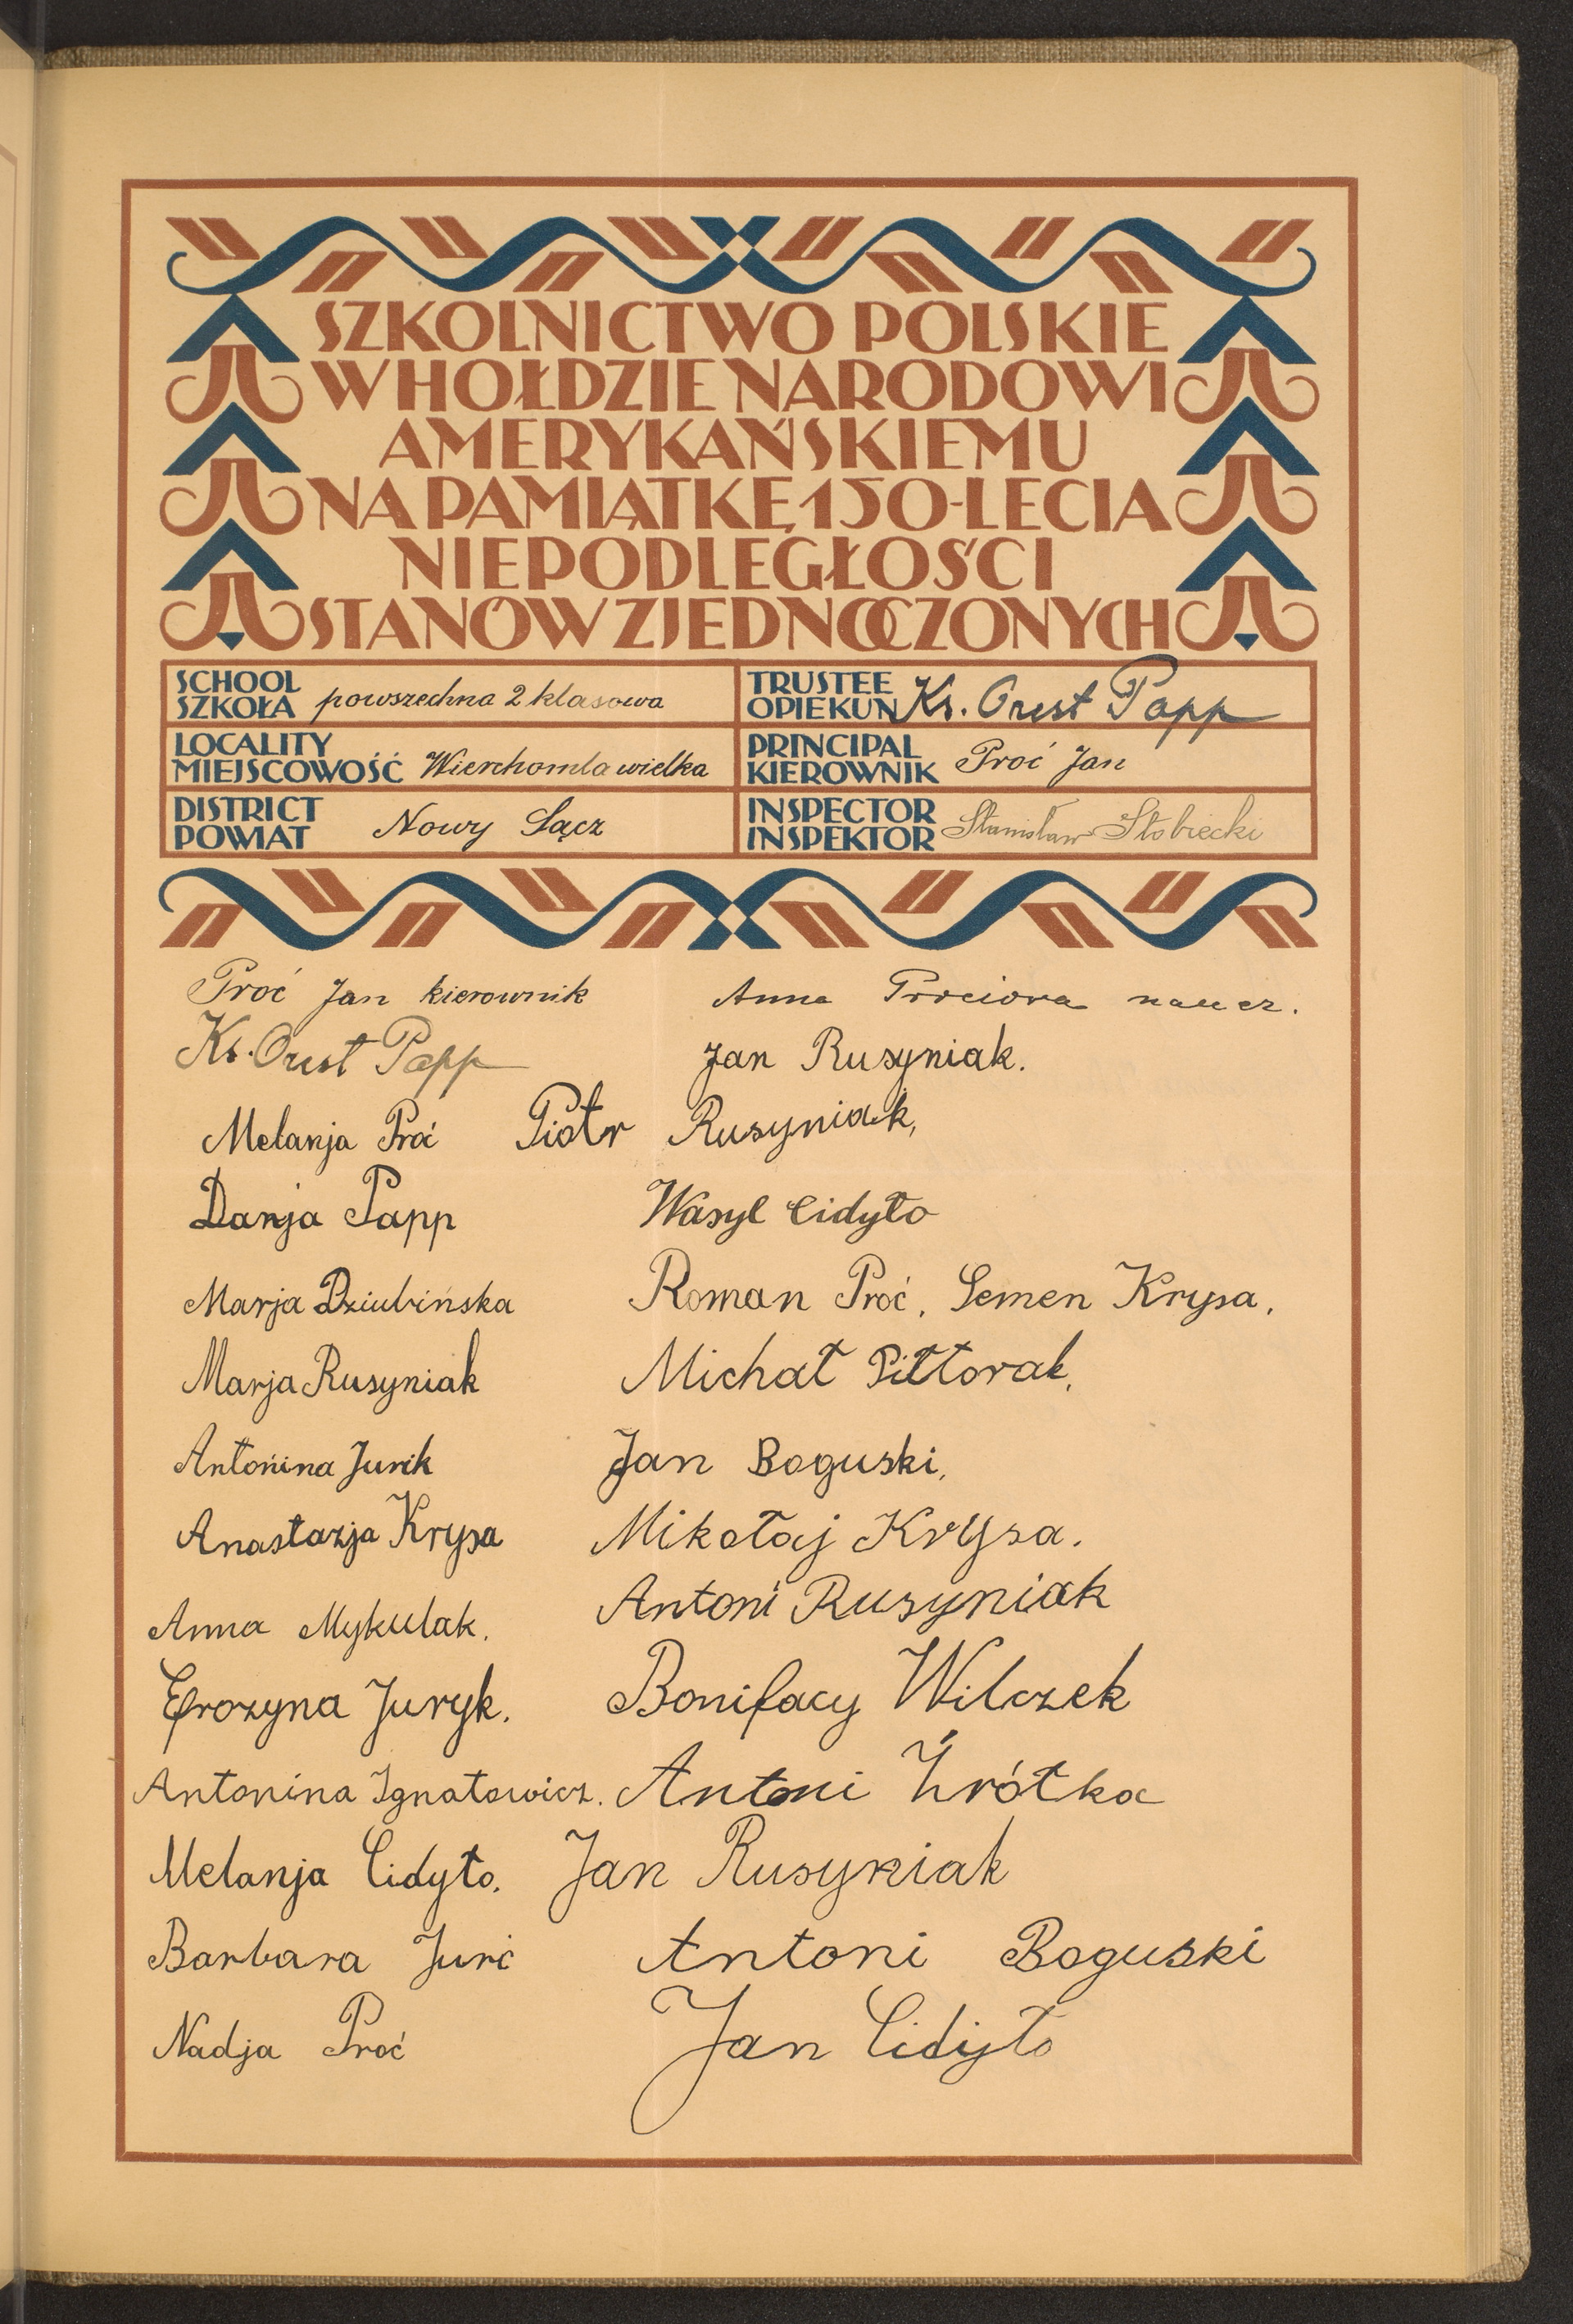 SZKOLNICTWO POLSKIE
W HOŁDZIE NARODOWI
AMERYKAŃSKIEMU
NA PAMIĄTKĘ 150-LECIA
NIEPODLEGŁOŚCI
STANÓW ZJEDNOCZONYCH
SCHOOL
SZKOŁA powszechna 2 klasowa
TRUSTEE
OPIEKUN Ks. Orest Papp
LOCALITY
MIEJSCOWOŚĆ Wierchomla wielka
PRINCIPAL
KIEROWNIK Proć Jan
DISTRICT
POWIAT Nowy Sącz
INSPECTOR
INSPEKTOR Stanisław Słobiecki
Proć Jan kierownik Anna Prociowa naucz.
Ks. Orest Papp Jan Rusyniak.
Melanja Proć Piotr Rusyniak,
Danja Papp Wasyl Cidyło
Marja Dziubińska Roman Proć, Semen Krysa,
Marja Rusyniak Michał Pittorak,
Antonina Jurik Jan Boguski,
Anastazja Krysa Mikołaj Krysa.
Anna Mykulak. Antoni Rusyniak
Efrozyna Juryk. Bonifacy Wilczek
Antonina Ignatowicz. Antoni Źrótka
Melanja Cidyło. Jan Rusyniak
Barbara Jurić Antoni Boguski
Nadja Proć Jan Cidyło